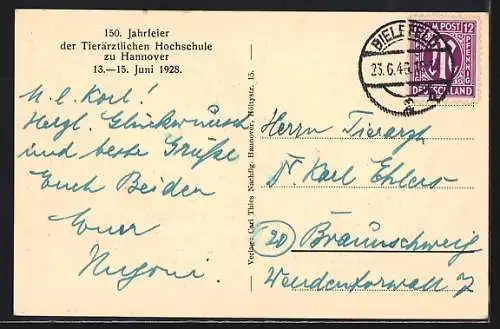 150. Jahrfeier
der Tierärztlichen Hochschule
zu Hannover
13.—15. Juni 1928.
M. l. Karl!
Herzl. Glückwunsch
und beste Grüße
Euch Beiden
Euer
Verlag: Carl Thies Nachflg. Hannover, Höltystr. 15.
BIELEFELD
23.6.46
M POST 12
PFENNIG
DEUTSCHLAND
Herrn Tierarzt
Dr. Karl Ehlers
(20) Braunschweig
Wendentorwall 7